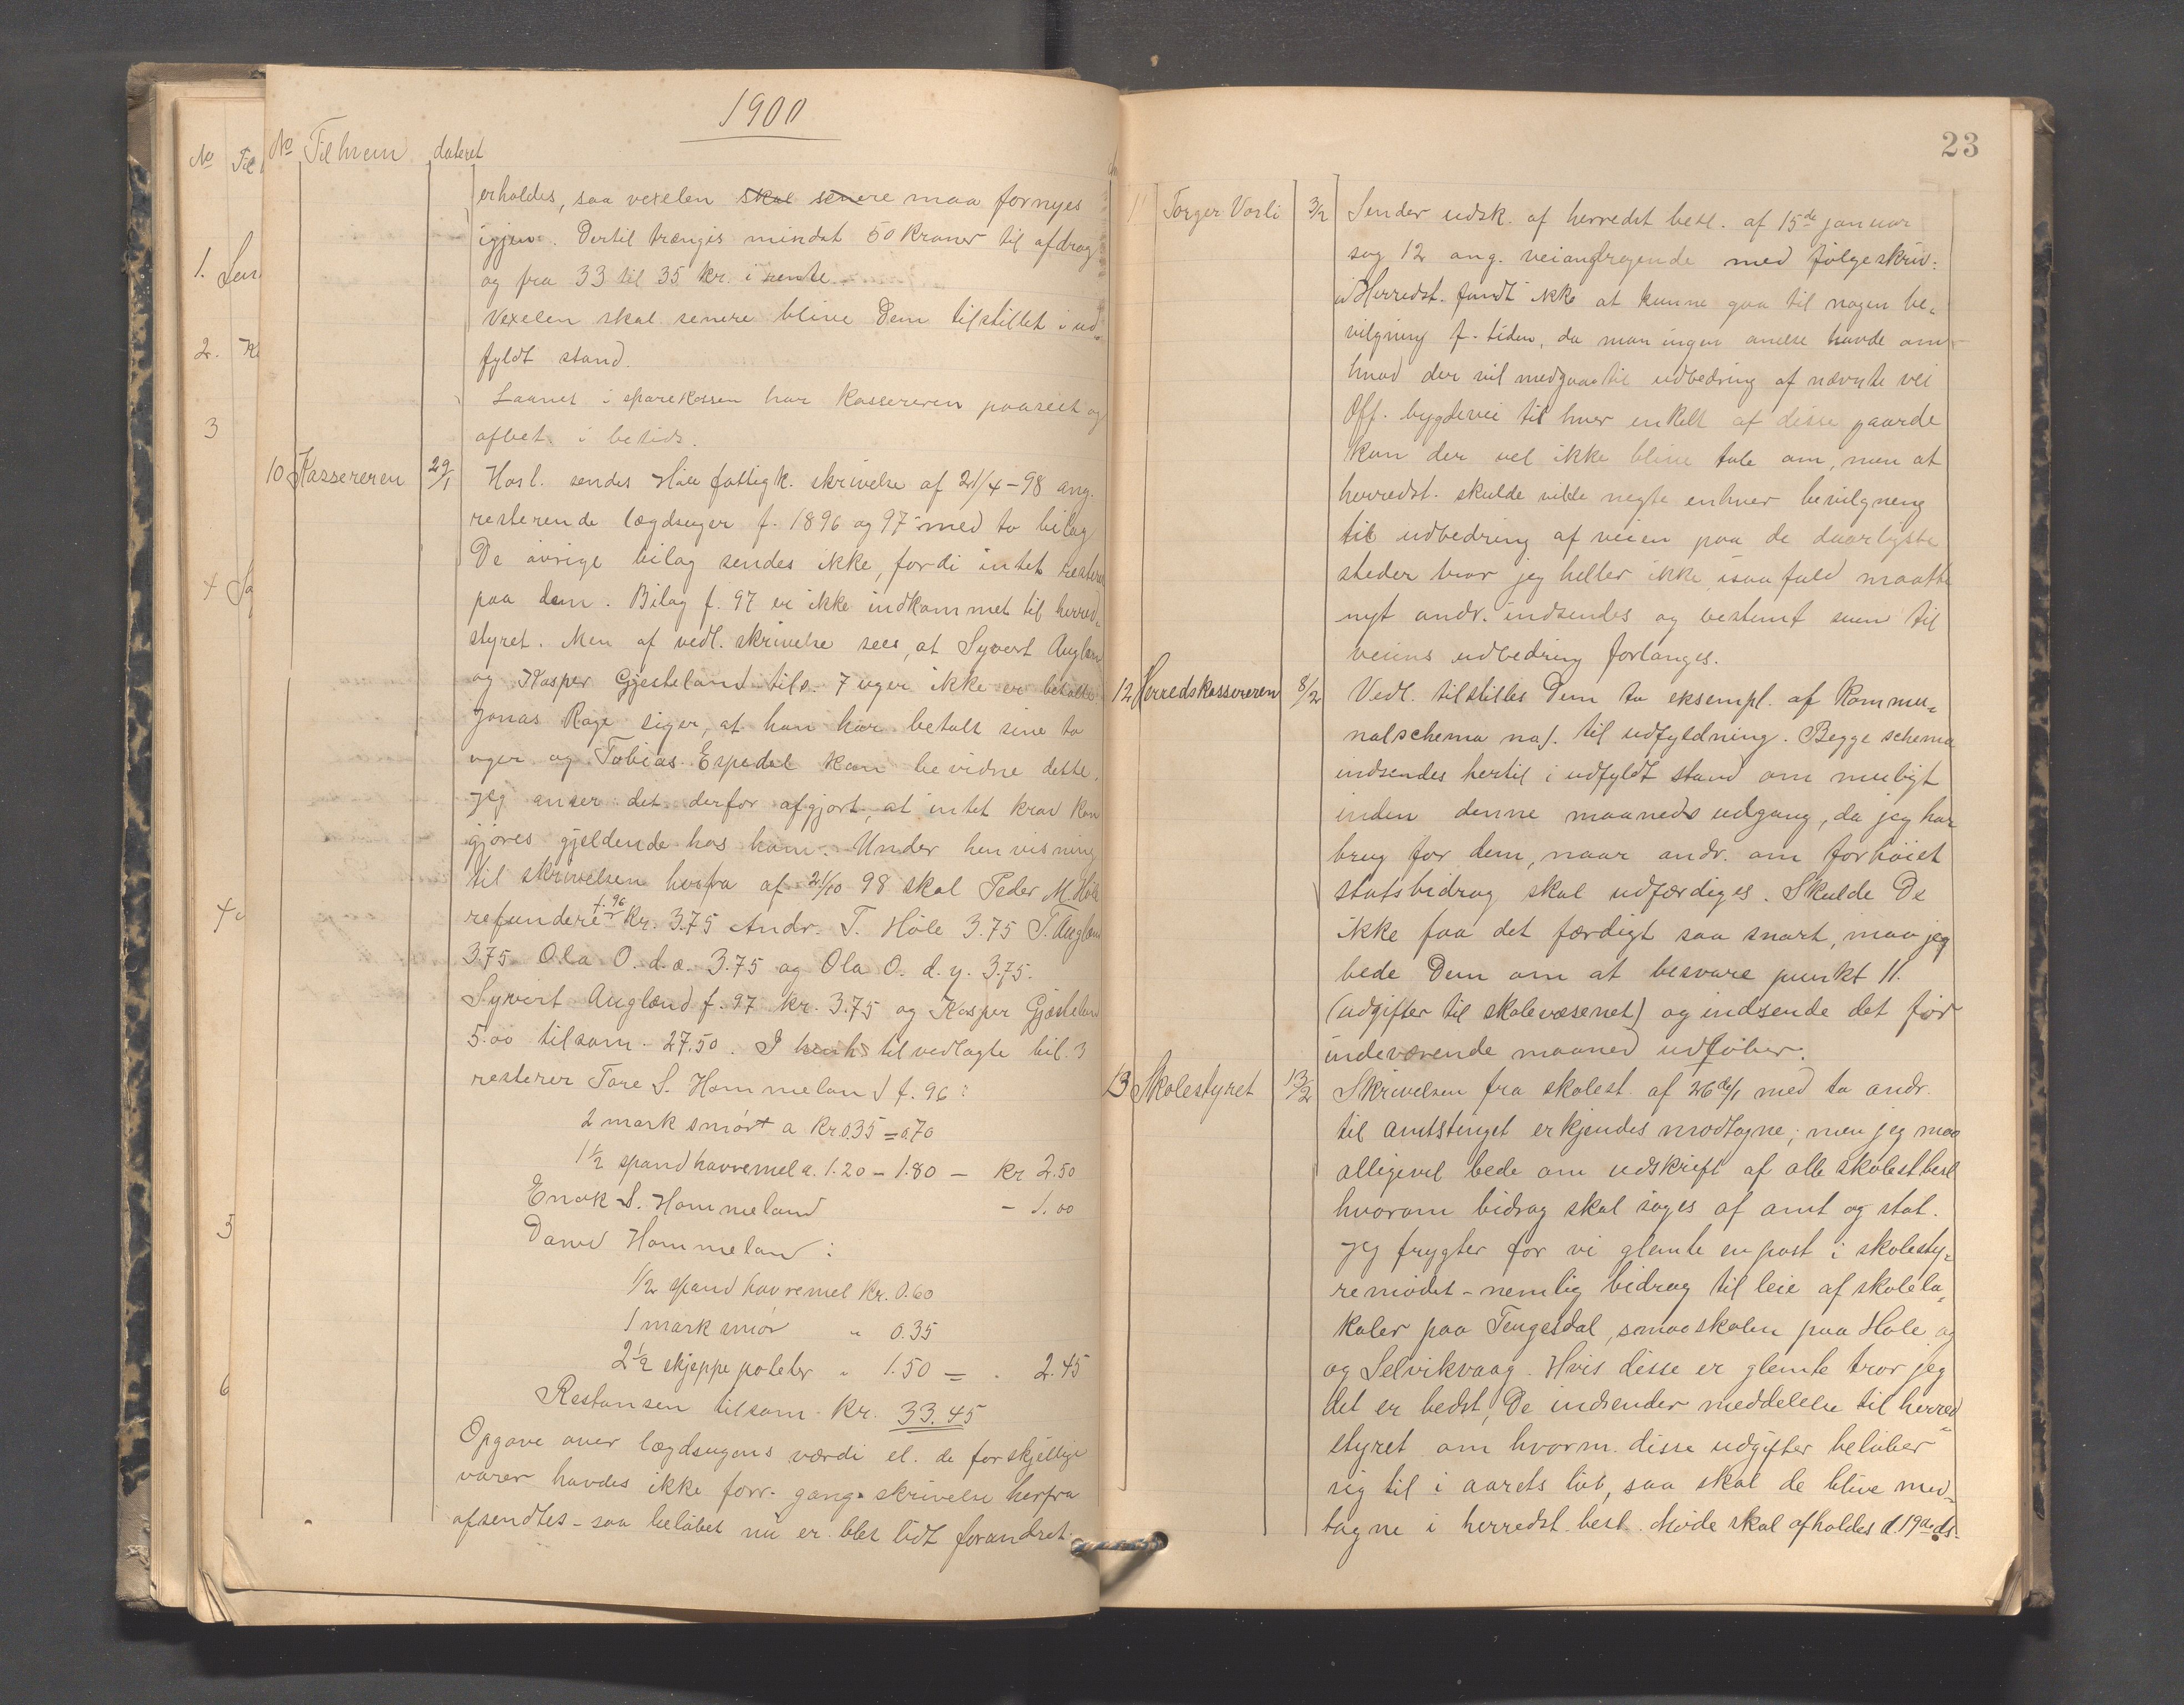 1900
No Til hvem dateret
erholdes, saa vexelen skal senere maa fornyes
igjen. Dertil trængis mindst 50 kroner til afdrag
og fra 33 til 35 kr. i rente.
Vexelen skal senere blive Dem tilstillet i ud-
fyldt stand.
Laanet i sparekassen har kassereren paaseet og
afbet. i betids.
10 Kassereren 29/1 Hosl. sendes Høle fattigk. skrivelse af 21/4-98 ang.
resterende lægdsuger f. 1896 og 97 med to bilag
De øvrige bilag sendes ikke, fordi intet resterer
paa dem. Bilag f. 97 er ikke indkommet til herred-
styret. Men af vedl. skrivelse sees, at Syvert Auglænd
og Kasper Gjesteland tils. 7 uger ikke er betalte.
Jonas Rage siger, at han har betalt sine to
uger og Tobias Espedal kan bevidne dette.
Jeg anser det derfor afgjort, at intet krav kan
gjøres gjeldende hos ham. Under henvisning
til skrivelsen herfra af 21/10 98 skal Peder M. Høle
refundere f. 96 Kr. 3.75 Andr. T. Høle 3.75 T. Auglænd
3.75 Ola O. d. æ. 3.75 og Ola O. d. y. 3.75.
Syvert Auglænd f. 97 kr. 3.75 og Kasper Gjesteland
5.00 tilsam. 27.50. I henh. til vedlagte bil. 3
resterer Tore S. Hommeland f. 96:
2 mark smør a Kr. 0.35 = 0.70
1 1/2 spand havremel a. 1.20 - 1.80 - Kr 2.50
Enok S. Hommeland - 1.00
Daniel Hommeland:
1/2 spand havremel Kr. 0.60
1 mark smør " 0.35
2 1/2 skjeppe poteter " 1.50 = " 2.45
Restansen tilsam. Kr. 33.45
Opgave over lægdsugens værdi el. de forskjellige
varer havdes ikke forr. gang skrivelse herfra
afsendtes - saa beløbet nu er blet lidt forandret.
23
11 Torger Vasli 3/2 Sender udsk. af herredst besl. af 15de januar
sag 12 ang. veiandragende med følgeskriv:
Herredst. fandt ikke at kunne gaa til nogen be-
vilgning f. tiden, da man ingen anelse havde om
hvad der vil medgaa til udbedring af nævnte vei
Off. bygdevei til hver enkelt af disse gaarde
kan der vel ikke blive tale om, men at
herredst. skulde ville negte enhver bevilgning
til udbedring af veien paa de daarligste
steder tror jeg heller ikke, isaafald maatte
nyt andr. indsendes og bestemt sum til
veiens udbedring forlanges.
12 Herredskassereren 8/2 Vedl. tilstilles Dem to eksempl. af kommu-
nalschema no 1. til udfyldning. Begge schema
indsendes hertil i udfyldt stand om muligt
inden denne maaneds udgang, da jeg har
brug for dem, naar andr. om forhøiet
statsbidrag skal udfærdiges. Skulde De
ikke faa det færdigt saa snart, maa jeg
bede Dem om at besvare punkt 11.
(udgifter til skolevæsenet) og indsende det før
indeværende maaned udløber.
13 Skolestyret 13/2 Skrivelsen fra skolest. af 26de/1 med to andr.
til amtstinget erkjendes modtagne; men jeg maa
alligevel bede om udskrift af alle skolest besl
hvorom bidrag skal søges af amt og stat.
Jeg frygter for vi glemte en post i skolesty-
remødet - nemlig bidrag til leie af skolelo-
kaler paa Tengesdal, smaaskolen paa Hole og
og Selvikvaag. Hvis disse er glemte tror jeg
det er bedst, De indsender meddelelse til herred-
styret om hvorm. disse udgifter beløber
sig til i aarets løb, saa skal de blive med-
tagne i herredst. besl. Møde skal afholdes d. 19de ds.